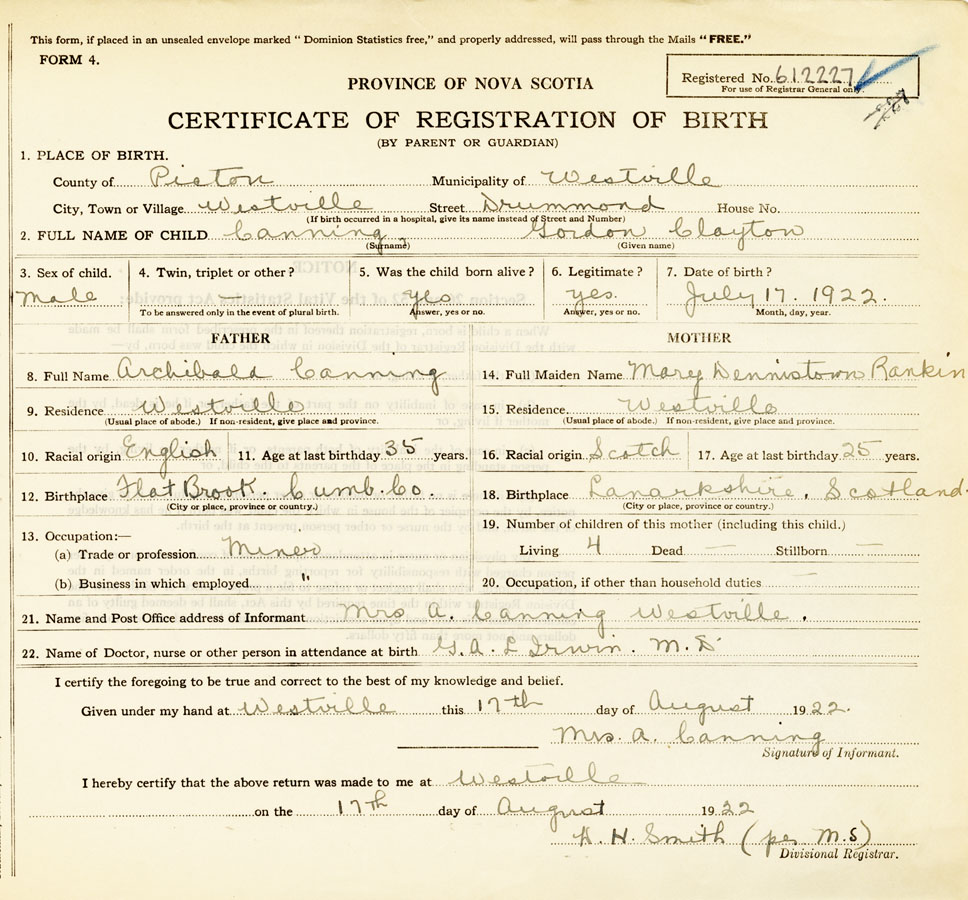 This form, if placed in an unsealed envelope marked "Dominion Statistics free," and properly addressed, will pass through the Mails "FREE."
FORM 4.
Registered No. 612227
For use of Registrar General only.
PROVINCE OF NOVA SCOTIA
CERTIFICATE OF REGISTRATION OF BIRTH
(BY PARENT OR GUARDIAN)
1. PLACE OF BIRTH.
County of Pictou Municipality of Westville
City, Town or Village Westville Street Drummond House No.
(If birth occurred in a hospital, give its name instead of Street and Number)
2. FULL NAME OF CHILD Canning Gordon Clayton
(Surname) (Given name)
3. Sex of child. 4. Twin, triplet or other? 5. Was the child born alive? 6. Legitimate? 7. Date of birth?
Male — yes yes. July 17. 1922.
To be answered only in the event of plural birth. Answer, yes or no. Answer, yes or no. Month, day, year.
FATHER MOTHER
8. Full Name Archibald Canning 14. Full Maiden Name Mary Dennistown Rankin
9. Residence Westville 15. Residence. Westville
(Usual place of abode.) If non-resident, give place and province. (Usual place of abode.) If non-resident, give place and province.
10. Racial origin English 11. Age at last birthday 35 years. 16. Racial origin Scotch 17. Age at last birthday 25 years.
12. Birthplace Flat Brook. Cumb. Co. 18. Birthplace Lanarkshire, Scotland.
(City or place, province or country.) (City or place, province or country.)
19. Number of children of this mother (including this child.)
13. Occupation:—
(a) Trade or profession Miner Living 4 Dead — Stillborn —
(b) Business in which employed " 20. Occupation, if other than household duties —
21. Name and Post Office address of Informant Mrs A. Canning Westville.
22. Name of Doctor, nurse or other person in attendance at birth G. A. L Irwin. M. D
I certify the foregoing to be true and correct to the best of my knowledge and belief.
Given under my hand at Westville this 17th day of August 1922.
Mrs. A. Canning
Signature of Informant.
I hereby certify that the above return was made to me at Westville
on the 17th day of August 1922
H. H. Smith (per M.S)
Divisional Registrar.